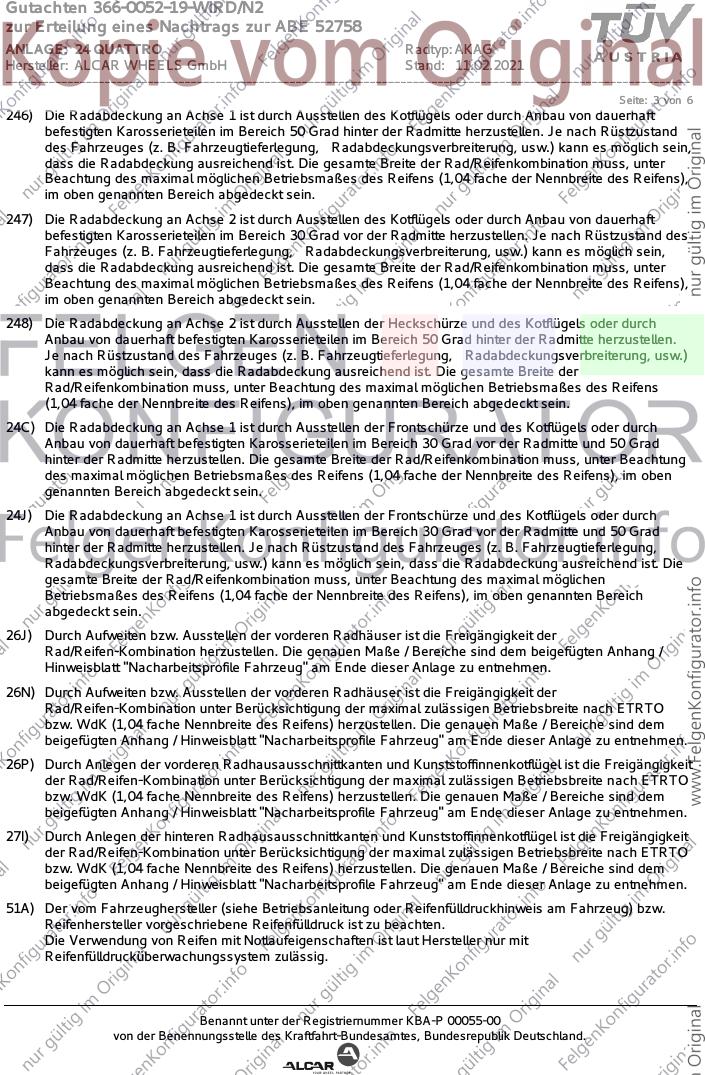 Gutachten 366-0052-19-WIRD/N2
zur Erteilung eines Nachtrags zur ABE 52758
ANLAGE: 24 QUATTRO Radtyp: AKAG
Hersteller: ALCAR WHEELS GmbH Stand: 11.02.2021
TÜV
AUSTRIA
Kopie vom Original
Seite: 3 von 6
246) Die Radabdeckung an Achse 1 ist durch Ausstellen des Kotflügels oder durch Anbau von dauerhaft
befestigten Karosserieteilen im Bereich 50 Grad hinter der Radmitte herzustellen. Je nach Rüstzustand
des Fahrzeuges (z. B. Fahrzeugtieferlegung, Radabdeckungsverbreiterung, usw.) kann es möglich sein,
dass die Radabdeckung ausreichend ist. Die gesamte Breite der Rad/Reifenkombination muss, unter
Beachtung des maximal möglichen Betriebsmaßes des Reifens (1,04 fache der Nennbreite des Reifens),
im oben genannten Bereich abgedeckt sein.
247) Die Radabdeckung an Achse 2 ist durch Ausstellen des Kotflügels oder durch Anbau von dauerhaft
befestigten Karosserieteilen im Bereich 30 Grad vor der Radmitte herzustellen. Je nach Rüstzustand des
Fahrzeuges (z. B. Fahrzeugtieferlegung, Radabdeckungsverbreiterung, usw.) kann es möglich sein,
dass die Radabdeckung ausreichend ist. Die gesamte Breite der Rad/Reifenkombination muss, unter
Beachtung des maximal möglichen Betriebsmaßes des Reifens (1,04 fache der Nennbreite des Reifens),
im oben genannten Bereich abgedeckt sein.
248) Die Radabdeckung an Achse 2 ist durch Ausstellen der Heckschürze und des Kotflügels oder durch
Anbau von dauerhaft befestigten Karosserieteilen im Bereich 50 Grad hinter der Radmitte herzustellen.
Je nach Rüstzustand des Fahrzeuges (z. B. Fahrzeugtieferlegung, Radabdeckungsverbreiterung, usw.)
kann es möglich sein, dass die Radabdeckung ausreichend ist. Die gesamte Breite der
Rad/Reifenkombination muss, unter Beachtung des maximal möglichen Betriebsmaßes des Reifens
(1,04 fache der Nennbreite des Reifens), im oben genannten Bereich abgedeckt sein.
FELGEN
KONFIGURATOR
24C) Die Radabdeckung an Achse 1 ist durch Ausstellen der Frontschürze und des Kotflügels oder durch
Anbau von dauerhaft befestigten Karosserieteilen im Bereich 30 Grad vor der Radmitte und 50 Grad
hinter der Radmitte herzustellen. Die gesamte Breite der Rad/Reifenkombination muss, unter Beachtung
des maximal möglichen Betriebsmaßes des Reifens (1,04 fache der Nennbreite des Reifens), im oben
genannten Bereich abgedeckt sein.
24J) Die Radabdeckung an Achse 1 ist durch Ausstellen der Frontschürze und des Kotflügels oder durch
Anbau von dauerhaft befestigten Karosserieteilen im Bereich 30 Grad vor der Radmitte und 50 Grad
hinter der Radmitte herzustellen. Je nach Rüstzustand des Fahrzeuges (z. B. Fahrzeugtieferlegung,
Radabdeckungsverbreiterung, usw.) kann es möglich sein, dass die Radabdeckung ausreichend ist. Die
gesamte Breite der Rad/Reifenkombination muss, unter Beachtung des maximal möglichen
Betriebsmaßes des Reifens (1,04 fache der Nennbreite des Reifens), im oben genannten Bereich
abgedeckt sein.
FelgenKonfigurator.info
26J) Durch Aufweiten bzw. Ausstellen der vorderen Radhäuser ist die Freigängigkeit der
Rad/Reifen-Kombination herzustellen. Die genauen Maße / Bereiche sind dem beigefügten Anhang /
Hinweisblatt "Nacharbeitsprofile Fahrzeug" am Ende dieser Anlage zu entnehmen.
26N) Durch Aufweiten bzw. Ausstellen der vorderen Radhäuser ist die Freigängigkeit der
Rad/Reifen-Kombination unter Berücksichtigung der maximal zulässigen Betriebsbreite nach ETRTO
bzw. WdK (1,04 fache Nennbreite des Reifens) herzustellen. Die genauen Maße / Bereiche sind dem
beigefügten Anhang / Hinweisblatt "Nacharbeitsprofile Fahrzeug" am Ende dieser Anlage zu entnehmen.
26P) Durch Anlegen der vorderen Radhausausschnittkanten und Kunststoffinnenkotflügel ist die Freigängigkeit
der Rad/Reifen-Kombination unter Berücksichtigung der maximal zulässigen Betriebsbreite nach ETRTO
bzw. WdK (1,04 fache Nennbreite des Reifens) herzustellen. Die genauen Maße / Bereiche sind dem
beigefügten Anhang / Hinweisblatt "Nacharbeitsprofile Fahrzeug" am Ende dieser Anlage zu entnehmen.
27I) Durch Anlegen der hinteren Radhausausschnittkanten und Kunststoffinnenkotflügel ist die Freigängigkeit
der Rad/Reifen-Kombination unter Berücksichtigung der maximal zulässigen Betriebsbreite nach ETRTO
bzw. WdK (1,04 fache Nennbreite des Reifens) herzustellen. Die genauen Maße / Bereiche sind dem
beigefügten Anhang / Hinweisblatt "Nacharbeitsprofile Fahrzeug" am Ende dieser Anlage zu entnehmen.
51A) Der vom Fahrzeughersteller (siehe Betriebsanleitung oder Reifenfülldruckhinweis am Fahrzeug) bzw.
Reifenhersteller vorgeschriebene Reifenfülldruck ist zu beachten.
Die Verwendung von Reifen mit Notlaufeigenschaften ist laut Hersteller nur mit
Reifenfülldrucküberwachungssystem zulässig.
nur gültig im Original
www.FelgenKonfigurator.info
Original
Benannt unter der Registriernummer KBA-P 00055-00
von der Benennungsstelle des Kraftfahrt-Bundesamtes, Bundesrepublik Deutschland.
ALCAR